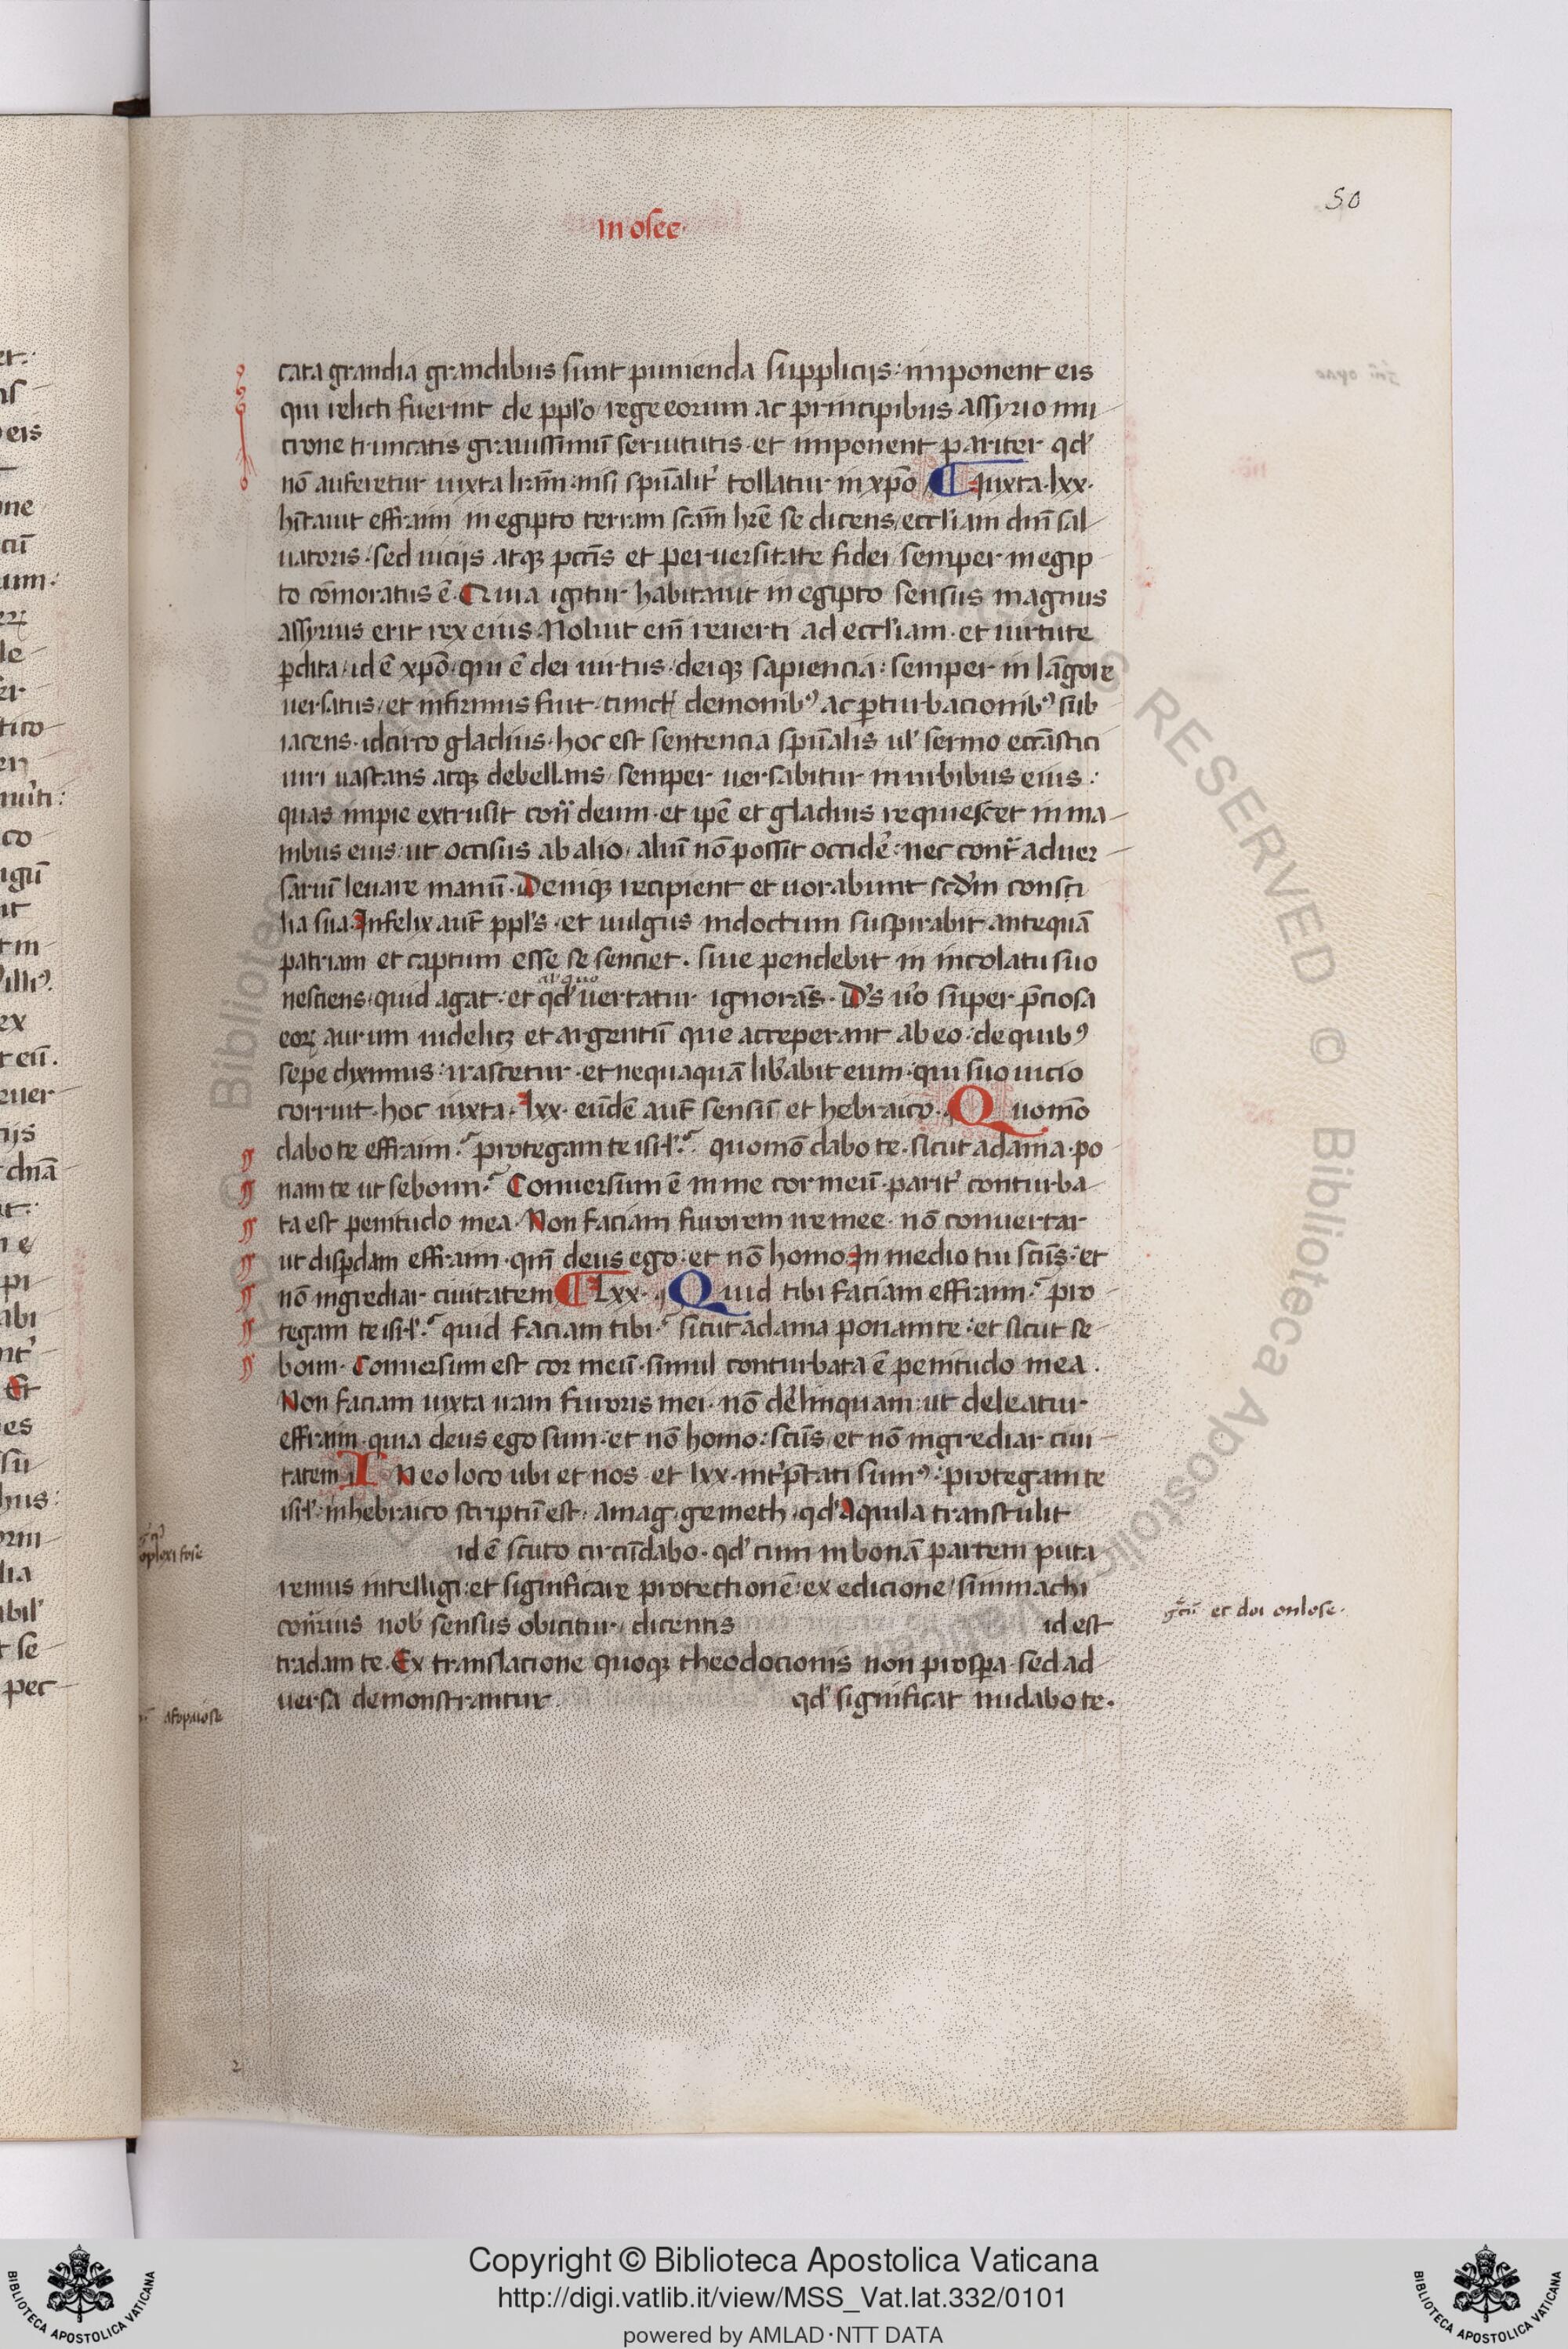 in osee·
50
cata grandia grandibus sunt punienda supplicijs: imponent eis
qui relicti fuerint de pplo rege eorum ac principibus assyrio mu
crone truncatis grauissimū seruitutis et imponent pariter qd
nō auferetur iuxta lr̄am: nisi spūalit' tollatur in xp̄o ¶ Iuxta·lxx·
hītauit effraim in egipto terram sc̄am hr̄e se dicens eccl'iam dn̄i sal
uatoris· sed uicijs atqȝ pccīs et peruersitate fidei semper in egip
to cōmoratus ē· Quia igitur habitauit in egipto sensus magnus
assyrius erit rex eius· Noluit em̄ reuerti ad eccl'iam· et uirtute
p̄dita· id ē xp̄o· qui ē dei uirtus deiqȝ sapiencia: semper in lāgore
uersatus et infirmus fuit cunct' demonibꝰ ac p̱turbacionibꝰ sub
iacens· idcirco gladius· hoc est sentencia spūalis ul' sermo eccāstici
uiri uastans atqȝ debellans semper uersabitur in urbibus eius:
quas impie extruxit cont̄ deum· et ip̄e et gladius requiescet in ma
nibus eius: ut occisus ab alio aliū nō possit occid'e: nec cont̄ aduer
sariū leuare manū· Deniqȝ recipient et uorabunt scd'm consi
lia sua· Infelix aut̄ ppl's et uulgus indoctum suspirabit antequā
patriam et captum esse se senciet· siue pendebit in incolatu suo
al' quo
nesciens quid agat: et qd' uertatur ignorās· D's u'o super p̄ciosa
eorꝝ aurum uidelicȝ et argentū que acceperant ab eo: de quibꝰ
sepe diximus: irascetur et nequaquā lib'abit eum· qui suo uicio
corruit· hoc iuxta·lxx· eūdē aut̄ sensū et hebraico· Quomō
dabo te effraim? protegam te isr'l'? quomō dabo te· sicut adama· po
nam te ut seboim? Conuersum ē in me cor meū· parit' conturba
ta est penitudo mea· Non faciam furorem ire mee· nō conuertar
ut disp̱dam effraim· qm̄ deus ego: et nō homo· In medio tui sc̄us: et
nō ingrediar ciuitatem ¶ Lxx· Quid tibi faciam effraim? pro
tegam te isr'l'? quid faciam tibi? sicut adama ponam te: et sicut se
boim· Conuersum est cor meū· simul conturbata ē penitudo mea·
Non faciam iuxta iram furoris mei· nō delinquam: ut deleatur
effraim· quia deus ego sum: et nō homo: sc̄us et nō ingrediar ciui
tatem· IN eo loco ubi et nos et lxx· int'p̄tati sumꝰ: protegam te
isr'l': in hebraico scriptū est· amag gemeth· qd' Aquila transtulit
id ē scuto circūdabo· qd' cum in bonā partem puta
remus intelligi: et significare protectionē: ex edicione simmachi
cont̄rius nob' sensus obicitur dicentis id est
gr̄cū et doi onlose·
tradam te· Ex translacione quoqȝ theodocionis non prosp̱a sed ad
uersa demonstrantur qd' significat nudabo te·
afopaiose
Copyright © Biblioteca Apostolica Vaticana
http://digi.vatlib.it/view/MSS_Vat.lat.332/0101
powered by AMLAD·NTT DATA